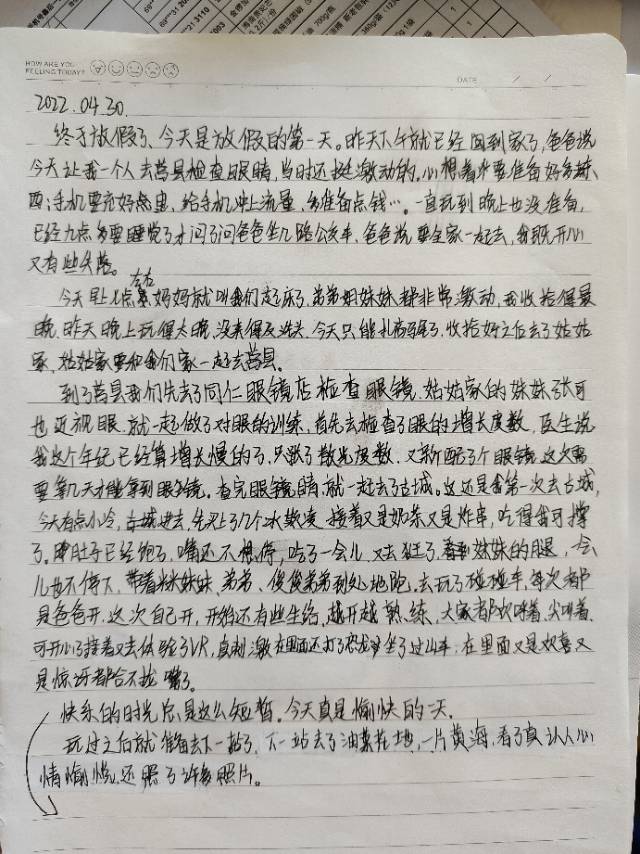 HOW ARE YOU
FEELING TODAY?
DATE / /
2022.04.30.
终于放假了、今天是放假的第一天。昨天下午就已经回到家了，爸爸说
今天让我一个人去莒县检查眼睛，当时还挺激动的，心想着要准备好多东
西：手机要充好点电，给手机冲上流量，多准备点钱…。一直玩到晚上也没准备，
已经九点多要睡觉了才问了问爸爸坐几路公交车，爸爸说要全家一起去，我既开心
又有些失落。
今天早上七点左右妈妈就叫我们起床了，弟弟妹妹都非常激动，我收拾得最
晚，昨天晚上玩得太晚，没来得及洗头，今天只能扎高马尾了，收拾好之后去了姑姑
家，姑姑家要和我们家一起去莒县。
到了莒县我们先去了同仁眼镜店检查眼镜，姑姑家的妹妹张可
也近视眼，就一起做了对眼的训练，首先去检查了眼的增长度数，医生说
我这个年纪已经算增长慢的了，只长了散光度数，又新配了个眼镜，这次需
要等几天才能拿到眼镜。查完眼镜睛，就一起去了古城。这还是我第一次去古城，
今天有点小冷，古城进去，先买上了几个冰激凌，接着又是奶茶又是炸串，吃得我可撑
了。即肚子已经饱了，嘴还不想停，吃了一会儿，又去逛了，看到妹妹的腿，一会
儿也不停下，带着妹妹、弟弟、俊俊弟弟到处地跑。去玩了碰碰车，每次都
是爸爸开，这次自己开，开始还有些生疏，越开越熟练，大家都欢呼着，尖叫着，
可开心了接着又去体验了VR，真刺激在里面还打了恐龙，坐了过山车，在里面又是欢喜又
是惊讶都合不拢嘴了。
快乐的时光总是这么短暂。今天真是愉快的一天。
玩过之后就准备去下一站了，下一站去了油菜花地，一片黄海，看了真让人心
情愉悦，还照了许多照片。